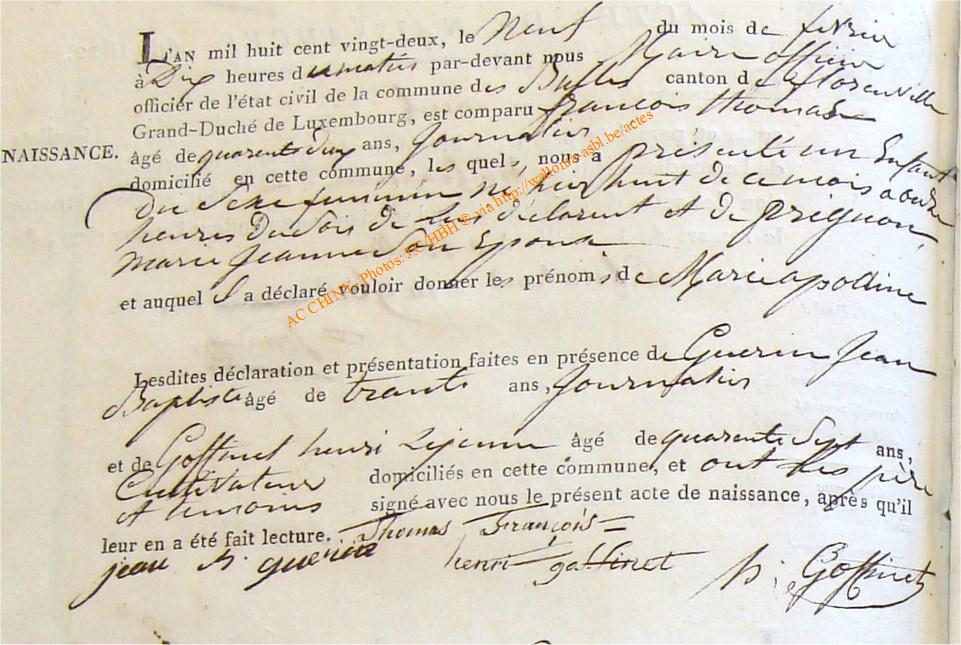 L'AN mil huit cent vingt-deux, le Neuf du mois de fevrier
à Dix heures du matin par-devant nous Maire officier
officier de l'état civil de la commune des Bulles canton de florenville
Grand-Duché de Luxembourg, est comparu françois thomas
NAISSANCE.
âgé de quarente deux ans, Journalier
domicilié en cette commune, les quels, nous a présenté un Enfant
du sexe feminin né hier huit de ce mois a onze
heures du soir de lui déclarent et de prignon
marie Jeanne son Epouse
et auquel il a déclaré vouloir donner les prénoms de Marie apoline
Lesdites déclaration et présentation faites en présence de Guerin Jean
Baptiste âgé de trante ans, Journalier
et de Goffinet henri Lejeune âgé de quarente Sept ans,
Cultivateur domiciliés en cette commune, et ont les père
et temoins signé avec nous le présent acte de naissance, après qu'il
leur en a été fait lecture. Thomas François
jean B guerin henri goffinet h: Goffinet
AC CHINY - Photos: J.C HBH © via http://wallonia-asbl.be/actes